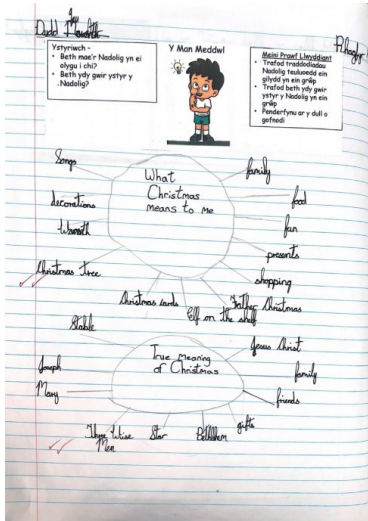 Dydd
Ystyriwch -
• Beth mae'r Nadolig yn ei
olygu i chi?
• Beth ydy gwir ystyr y
Nadolig?
Y Man Meddwl
Meini Prawf Llwyddiant
• Trafod traddodiadau
Nadolig teuluoedd ein
gilydd yn ein grŵp
• Trafod beth ydy gwir
ystyr y Nadolig yn ein
grŵp
• Penderfynu ar y dull o
gofnodi
What
Christmas
means to me
Songs
decorations
Warmth
Christmas tree
Christmas cards
Elf on the shelf
Father Christmas
shopping
presents
fun
food
family
True meaning
of Christmas
Stable
Joseph
Mary
Three Wise
Men
Star
Bethlehem
gifts
friends
family
Jesus Christ